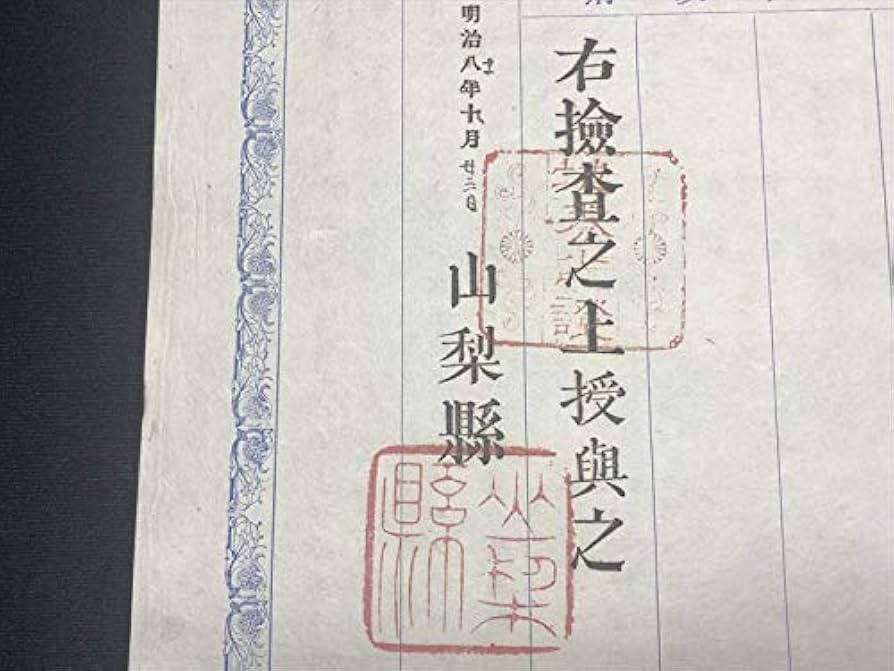 右撿査之上授與之
明治八年十月廿二日
山梨縣